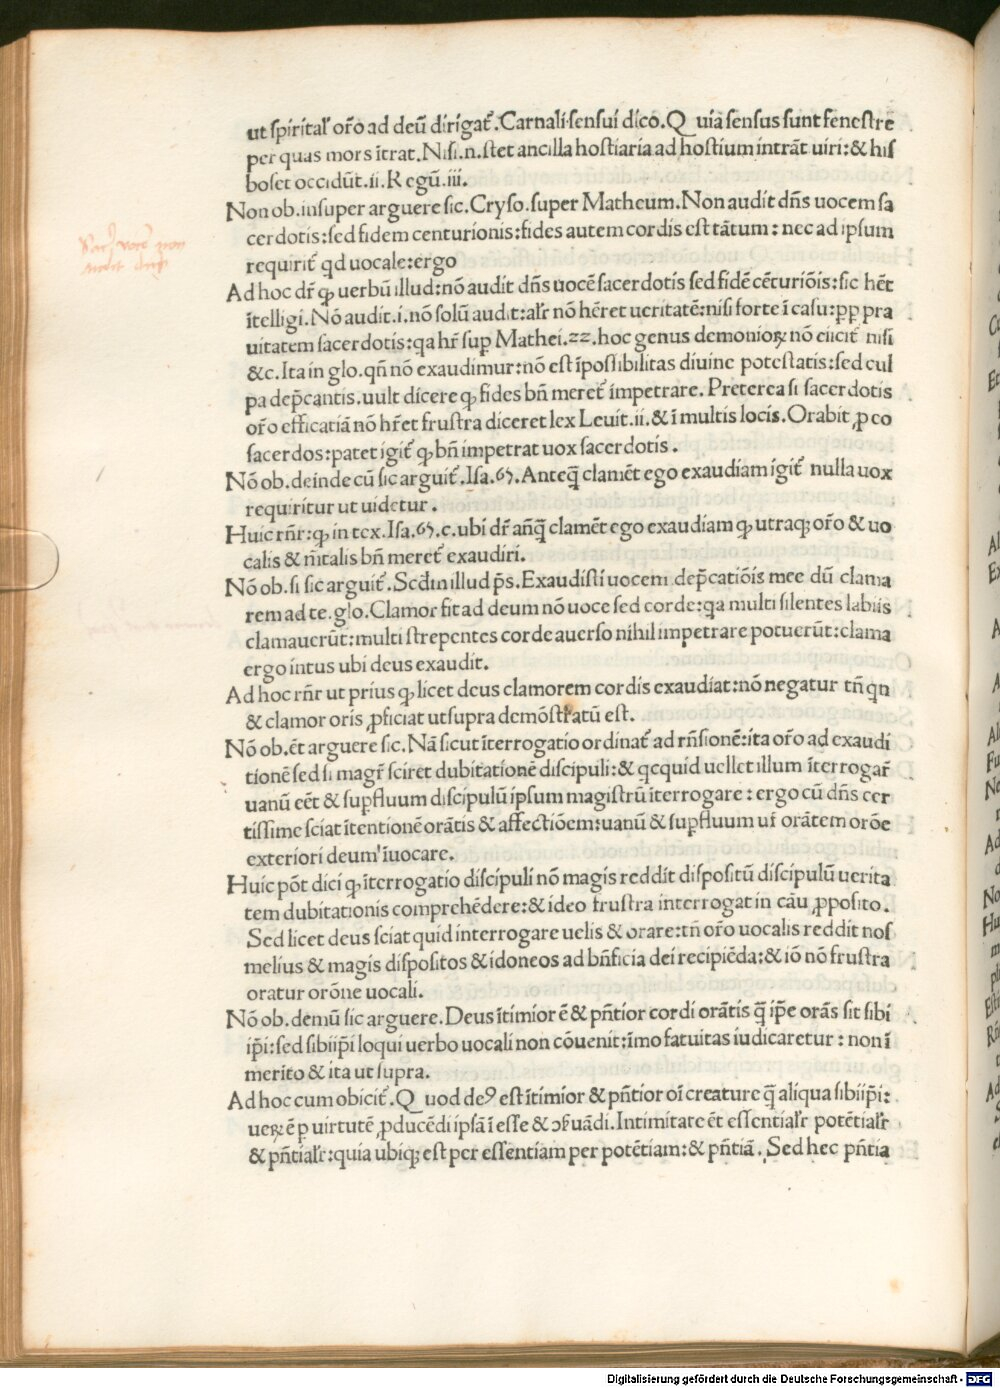 ut spirital' or̄o ad deū dirigat᷑. Carnali sensui dico. Q uia sensus sunt fenestre
per quas mors ītrat. Nisi.n. stet ancilla hostiaria ad hostium intrāt uiri: & his
boset occidūt. ii. Regū. iii.
Non ob. insuper arguere sic. Cryso. super Matheum. Non audit dn̄s uocem sa
cerdotis: sed fidem centurionis: fides autem cordis est tātum: nec ad ipsum
requirit᷑ qd uocale: ergo
Ad hoc dr̄ ꝙ uerbū illud: nō audit dn̄s uocē sacerdotis sed fidē cēturiōis: sic hēt
ītelligi. Nō audit. i. nō solū audit: alr̄ nō hēret ueritatē: nisi forte ī casu: ꝓp pra
uitatem sacerdotis: qa hr̄ sup̱ Mathei. 22. hoc genus demonioꝝ nō eiicit᷑ nisi
&c. Ita in glo. qn̄ nō exaudimur: nō est īpossibilitas diuine potestatis: sed cul
pa dep̄cantis. uult dicere ꝙ fides bn̄ meret᷑ impetrare. Preterea si sacerdotis
or̄o efficatiā nō hr̄et frustra diceret lex Leuit. ii. & ī multis locis. Orabit ꝓ eo
sacerdos: patet igit᷑ ꝙ bn̄ impetrat uox sacerdotis.
Nō ob. deinde cū sic arguit᷑. Isa. 65. Anteq̄ clamēt ego exaudiam igit᷑ nulla uox
requiritur ut uidetur.
Huic rn̄r: ꝙ in tex. Isa. 65. c. ubi dr̄ an̄q̄ clamēt ego exaudiam ꝙ utraqꝫ or̄o & uo
calis & mn̄talis bn̄ meret᷑ exaudiri.
Nō ob. si sic arguit᷑. Scdm illud p̄s. Exaudisti uocem dep̄catiōis mee dū clama
rem ad te. glo. Clamor fit ad deum nō uoce sed corde: qa multi silentes labiis
clamauerūt: multi strepentes corde auerso nihil impetrare potuerūt: clama
ergo intus ubi deus exaudit.
Ad hoc rn̄r ut prius ꝙ licet deus clamorem cordis exaudiat: nō negatur tn̄ qn
& clamor oris ꝓficiat utsupra demōstratū est.
Nō ob. ēt arguere sic. Nā sicut īterrogatio ordinat᷑ ad rn̄sionē: ita or̄o ad exaudi
tionē sed si magr̄ sciret dubitationē discipuli: & qcquid uellet illum īterrogar̄
uanū eēt & sup̱fluum discipulū ipsum magistrū īterrogare: ergo cū dn̄s cer
tissime sciat ītentionē orātis & affectiōem: uanū & sup̱fluum ur̄ orātem orōe
exteriori deum iuocare.
Huic pōt dici ꝙ īterrogatio discipuli nō magis reddit dispositū discipulū uerita
tem dubitationis comprehēdere: & ideo frustra interrogat in cāu ꝓposito.
Sed licet deus sciat quid interrogare uelis & orare: tn̄ or̄o uocalis reddit nos
melius & magis dispositos & idoneos ad bn̄ficia dei recipiēda: & iō nō frustra
oratur orōne uocali.
Nō ob. demū sic arguere. Deus ītimior ē & pn̄tior cordi orātis q̄ ip̄e orās sit sibi
ip̄i: sed sibiip̄i loqui uerbo uocali non cōuenit: īmo fatuitas iudicaretur: non ī
merito & ita ut supra.
Ad hoc cum obicit᷑. Q uod deꝰ est ītimior & pn̄tior oī creature q̄ aliqua sibiip̄i:
ueꝝ ē p̱ uirtutē ꝓducēdi ipsā ī esse & ↄẜuādi. Intimitate ēt essentialr̄ potētialr̄
& pn̄tialr̄: quia ubiqꝫ est per essentiam per potētiam: & pn̄tiā. Sed hec pn̄tia
Digitalisierung gefördert durch die Deutsche Forschungsgemeinschaft - DFG